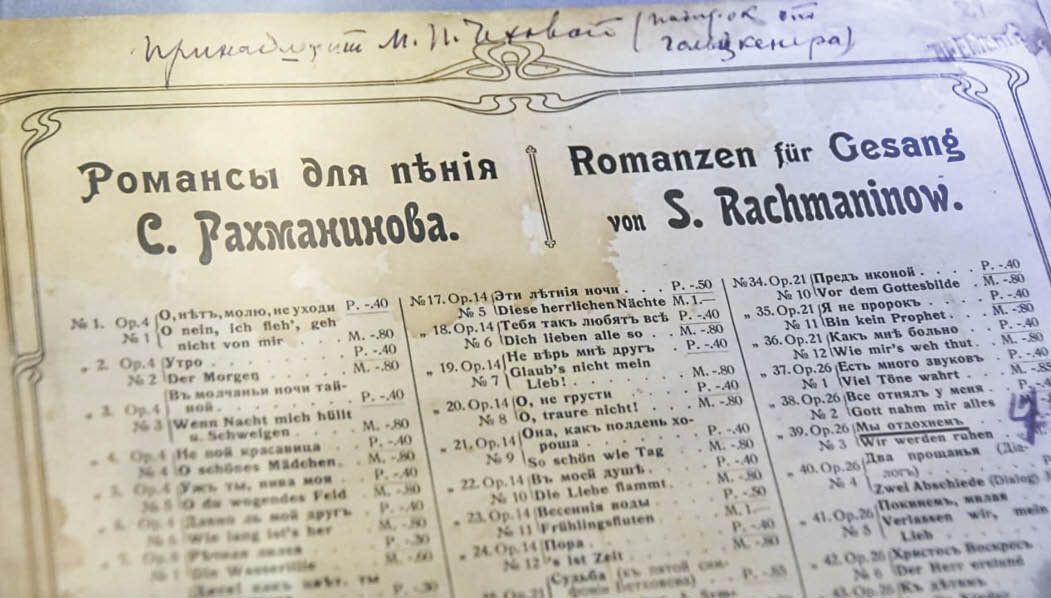 Принадлежит М. П. Чеховой (подарок от
Романсы для пѣнія
С. Рахманинова.
Romanzen für Gesang
von S. Rachmaninow.
№ 1. Op.4 О, нѣтъ, молю, не уходи P. -.40
№ 1 O nein, ich fleh', geh
nicht von mir . . . M. -.80
„ 2. Op.4 Утро . . . P. -.40
№ 2 Der Morgen . . . M. -.80
Въ молчаньи ночи тай-
„ 3. Op.4 ной . . . P. -.40
№ 3 Wenn Nacht mich hüllt
u. Schweigen . . . M. -.80
„ 4. Op.4 Не пой красавица P. -.40
№ 4 O schönes Mädchen. M. -.80
„ 5. Op.4 Ужъ ты, нива моя P. -.40
№ 5 O du wogendes Feld M. -.80
„ 6. Op.4 Давно ль мой другъ P. -.40
№ 6 Wie lang ist's her M. -.80
„ 7. P. -.30
№ 1 Die Wasserlilie M. -.60
ты
P. -.30
№17. Op.14 Эти лѣтнія ночи . . P. -.50
№ 5 Diese herrlichen Nächte M. 1.—
„ 18. Op.14 Тебя такъ любятъ всѣ P. -.40
№ 6 Dich lieben alle so . . M. -.80
„ 19. Op.14 Не вѣрь мнѣ другъ P. -.40
№ 7 Glaub's nicht mein
Lieb! . . . M. -.80
„ 20. Op.14 О, не грусти P. -.40
№ 8 O, traure nicht! . . . M. -.80
Она, какъ полдень хо-
„ 21. Op.14 роша . . . P. -.40
№ 9 So schön wie Tag M. -.80
„ 22. Op.14 Въ моей душѣ . . P. -.40
№ 10 Die Liebe flammt . . M. -.80
„ 23. Op.14 Весеннія воды . . P. -.50
№ 11 Frühlingsfluten . . M. 1.—
„ 24. Op.14 Пора . . . P. -.40
№ 12 's ist Zeit . . . M. -.80
Судьба (къ пятой сим-
Op.21 фоніи Бетховена) P. -.85
№34. Op.21 Предъ иконой . . . . P. -.40
№ 10 Vor dem Gottesbilde . M. -.80
„ 35. Op.21 Я не пророкъ . . . P. -.40
№ 11 Bin kein Prophet . . . M. -.80
„ 36. Op.21 Какъ мнѣ больно . . P. -.40
№ 12 Wie mir's weh thut . . M. -.80
„ 37. Op.26 Есть много звуковъ P. -.40
№ 1 Viel Töne wahrt . . . M. -.85
„ 38. Op.26 Все отнялъ у меня .
№ 2 Gott nahm mir alles
„ 39. Op.26 Мы отдохнемъ
№ 3 Wir werden ruhen
Два прощанья (Діа-
„ 40. Op.26 логъ)
№ 4 Zwei Abschiede (Dialog)
Покинемъ, милая
„ 41. Op.26 Verlassen wir, mein
№ 5 Lieb
„ 42. Op.26 Христосъ Воскресъ
№ 6 Der Herr erstund
43. Op.26 Къ дѣтямъ